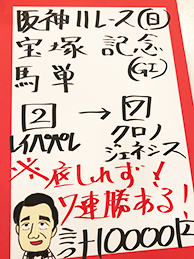 阪神11レース(日)
宝塚記念
馬単 (GI)
2 → 7
レイパパレ クロノ
ジェネシス
※底しれず!
7連勝ある!
計10000円